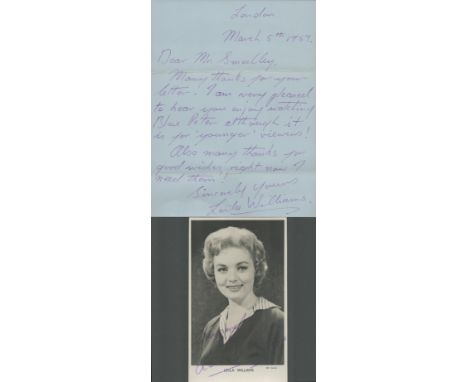 London
March 5th 1959.
Dear Mr Smedley,
Many thanks for your
letter. I am very pleased
to hear you enjoy watching
Blue Peter although it
is for 'younger' viewers!
Also many thanks for
good wishes, right now I
need them!
Sincerely yours
Leila Williams.
LEILA WILLIAMS